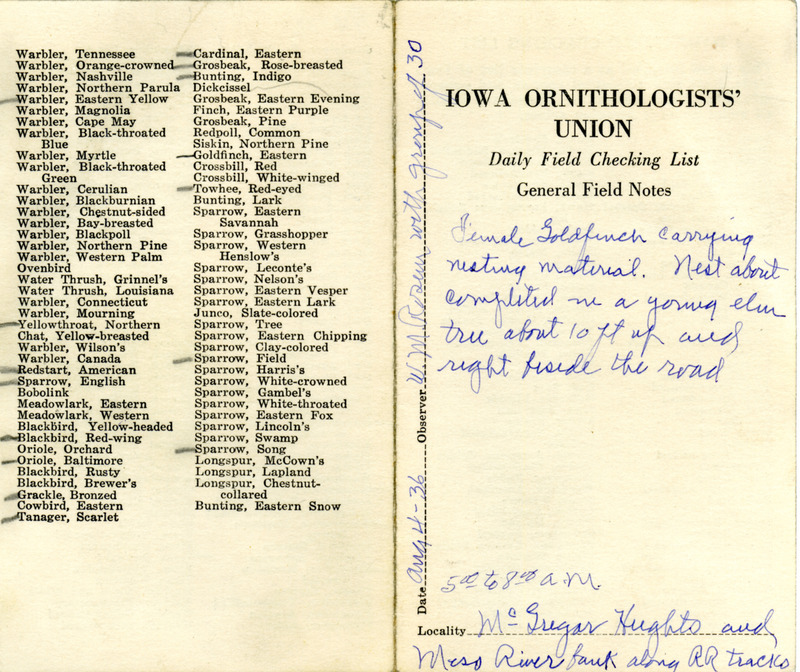 Warbler, Tennessee
Warbler, Orange-crowned
Warbler, Nashville
Warbler, Northern Parula
Warbler, Eastern Yellow
Warbler, Magnolia
Warbler, Cape May
Warbler, Black-throated
Blue
Warbler, Myrtle
Warbler, Black-throated
Green
Warbler, Cerulian
Warbler, Blackburnian
Warbler, Chestnut-sided
Warbler, Bay-breasted
Warbler, Blackpoll
Warbler, Northern Pine
Warbler, Western Palm
Ovenbird
Water Thrush, Grinnel's
Water Thrush, Louisiana
Warbler, Connecticut
Warbler, Mourning
Yellowthroat, Northern
Chat, Yellow-breasted
Warbler, Wilson's
Warbler, Canada
Redstart, American
Sparrow, English
Bobolink
Meadowlark, Eastern
Meadowlark, Western
Blackbird, Yellow-headed
Blackbird, Red-wing
Oriole, Orchard
Oriole, Baltimore
Blackbird, Rusty
Blackbird, Brewer's
Grackle, Bronzed
Cowbird, Eastern
Tanager, Scarlet
Cardinal, Eastern
Grosbeak, Rose-breasted
Bunting, Indigo
Dickcissel
Grosbeak, Eastern Evening
Finch, Eastern Purple
Grosbeak, Pine
Redpoll, Common
Siskin, Northern Pine
Goldfinch, Eastern
Crossbill, Red
Crossbill, White-winged
Towhee, Red-eyed
Bunting, Lark
Sparrow, Eastern
Savannah
Sparrow, Grasshopper
Sparrow, Western
Henslow's
Sparrow, Leconte's
Sparrow, Nelson's
Sparrow, Eastern Vesper
Sparrow, Eastern Lark
Junco, Slate-colored
Sparrow, Tree
Sparrow, Eastern Chipping
Sparrow, Clay-colored
Sparrow, Field
Sparrow, Harris's
Sparrow, White-crowned
Sparrow, Gambel's
Sparrow, White-throated
Sparrow, Eastern Fox
Sparrow, Lincoln's
Sparrow, Swamp
Sparrow, Song
Longspur, McCown's
Longspur, Lapland
Longspur, Chestnut-
collared
Bunting, Eastern Snow
Date Aug 4-36 Observer W. M. Rosen with group of 30
IOWA ORNITHOLOGISTS'
UNION
Daily Field Checking List
General Field Notes
Female Goldfinch carrying
nesting material. Nest about
completed in a young elm
tree about 10 ft up and
right beside the road
5:00 to 8:00 a.m.
Locality McGregor Heights and
Miss River bank along RR tracks